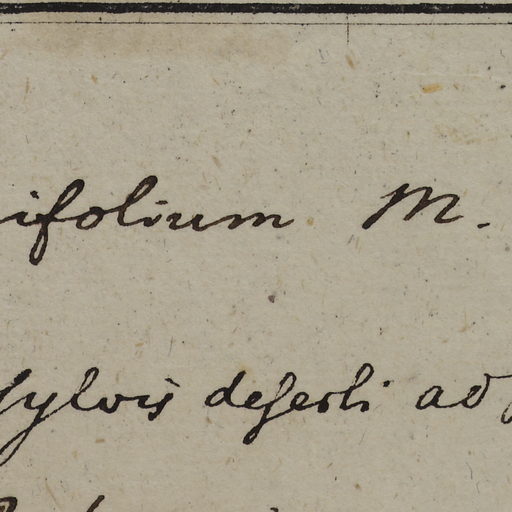 ifolium M.
sylvis deserti ad